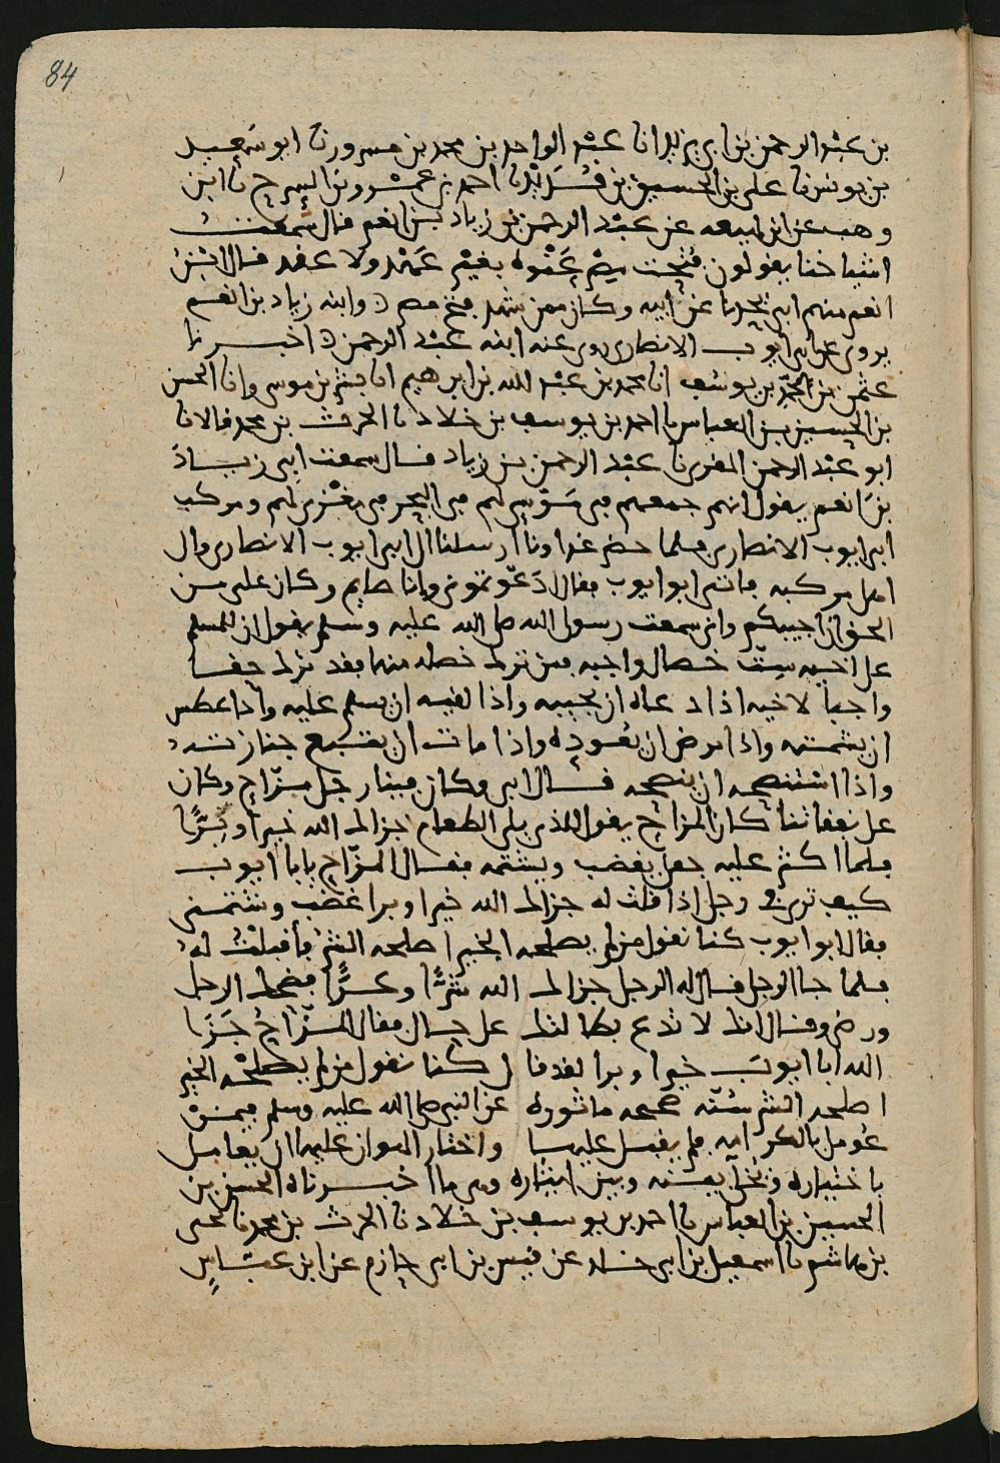 84
بن عبد الرحمن بن ابي يزيد انا عبد الواحد بن محمد بن مسرور نا ابو سعيد
بن يونس نا علي بن الحسين بن قديد نا احمد بن عمرو بن السرح نا ابن
وهب عن ابن لهيعه عن عبد الرحمن بن زياد بن انعم قال سمعت
اشياخنا يقولون فتحت مصر عنوة بغير عهد ولا عقد قال ابن
انعم منهم ابي يحدثنا عن ابيه وكان ممن شهد فتح مصر وابنه زياد بن انعم
يروي عن ابي ايوب الانصاري روى عنه ابنه عبد الرحمن اخبرنا
عثمن بن بن يوسف انا محمد بن عبد الله بن ابرهيم انا بشر بن موسى وانا الحسن
بن الحسين بن العباس نا احمد بن يوسف بن خلاد نا الحرث بن محمد قالا نا
ابو عبد الرحمن المقري نا عبد الرحمن بن زياد قال سمعت ابي زياد
بن انعم يقول انهم جمعهم في البحر ومركب
ابي ايوب الانصاري فلما حضر غداونا ارسلنا الى ابي ايوب الانصاري والى
اهل مركبه فاتى ابو ايوب فقال دعوتموني وانا صايم وكان علي من
الحق ان اجيبكم واني سمعت رسول الله صلى الله عليه وسلم يقول ان للمسلم
على اخيه ست خصال واجبه فمن ترك خصله منها فقد ترك حقا
واجبا لاخيه اذا دعاه ان يجيبه واذا لقيه ان يسلم عليه واذا عطس
ان يشمته واذا مرض ان يعوده واذا مات ان يتبع جنازته
واذا استنصحه ان ينصحه قال ابي وكان فينا رجل مزّاح وكان
على نفقاتنا كان المزاح يقول للذي يلي الطعام جزاك الله خيرا وبرا
فلما اكثر عليه جعل يغضب ويشتمه فقال المزّاح يابا ايوب
كيف ترى في رجل اذا قلت له جزاك الله خيرا وبرا غضب وشتمني
فقال ابو ايوب كنا نقول من لم يصلحه الخير اصلحه الشر فأقبلت له
فلما جا الرجل قال له الرجل جزاك الله شرًّا وعرًّا فضحك الرجل
ورضي وقال انك لا تدع بطالتك على حال فقال المزّاح جزا
الله ابا ايوب خيرا وبرا لقد قال كنا نقول من لم يصلحه الخير
اصلحه الشر سنّه صحيحه ماثوره عن النبي صلى الله عليه وسلم فيمن
عومل بالكرامه فلم يقبل عليها واختار الهوان عليها ان يعامل
باختياره ويخلى بينه وبين ايثاره وهي ما اخبرناه الحسن بن
الحسين بن العباس نا احمد بن يوسف بن خلاد نا الحرث بن محمد نا يحيى
بن هاشم نا اسمعيل بن ابي خالد عن قيس بن ابي حازم عن ابن عبّاسٍ